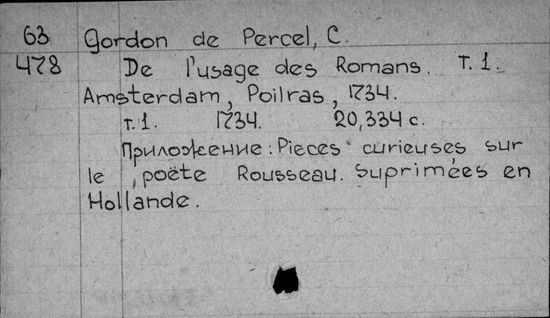 63 Gordon de Percel, C.
478 De l'usage des Romans. T. 1.
Amsterdam, Poilras, 1734.
т. 1. 1734. 20,334 с.
Приложение: Pieces curieuses sur
le poëte Rousseau. Suprimées en
Hollande.